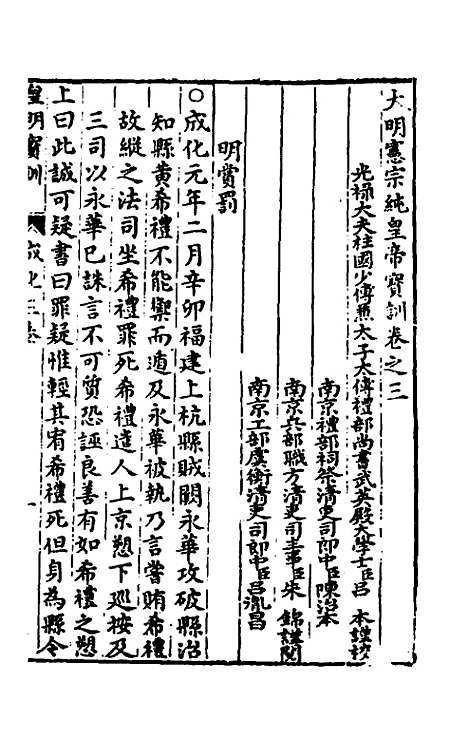 大明憲宗純皇帝寶訓卷之三
光祿大夫柱國少傅兼太子太傅禮部尚書武英殿大學士臣呂　本謹校
南京禮部祠祭清吏司郎中臣陳治本
南京兵部職方清吏司主事臣朱　錦謹閱
南京工部虞衡清吏司郎中臣呂胤昌
明賞罰
○成化元年二月辛卯福建上杭縣賊闕永華攻破縣治
知縣黃希禮不能禦而遁及永華被執乃言嘗賄希禮
故縱之法司坐希禮罪死希禮造人上京愬下廵按及
三司以永華已誅言不可質恐誣良善有如希禮之愬
上曰此誠可疑書曰罪疑惟輕其宥希禮死但身為縣令
皇明寶訓　成化三卷　一